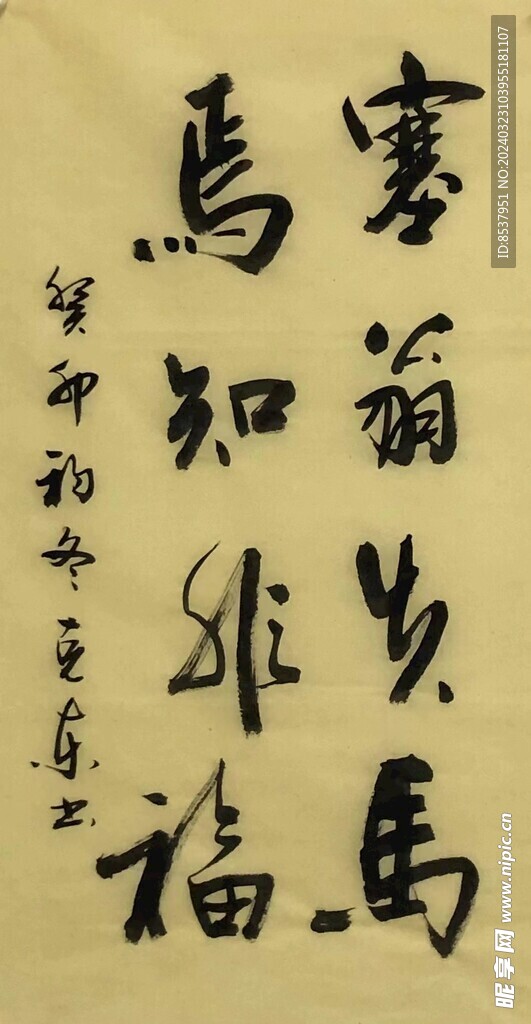 塞翁失马
焉知非福
癸卯初冬克东书
ID:8537951 NO:20240323103955181107
昵享网 www.nipic.cn